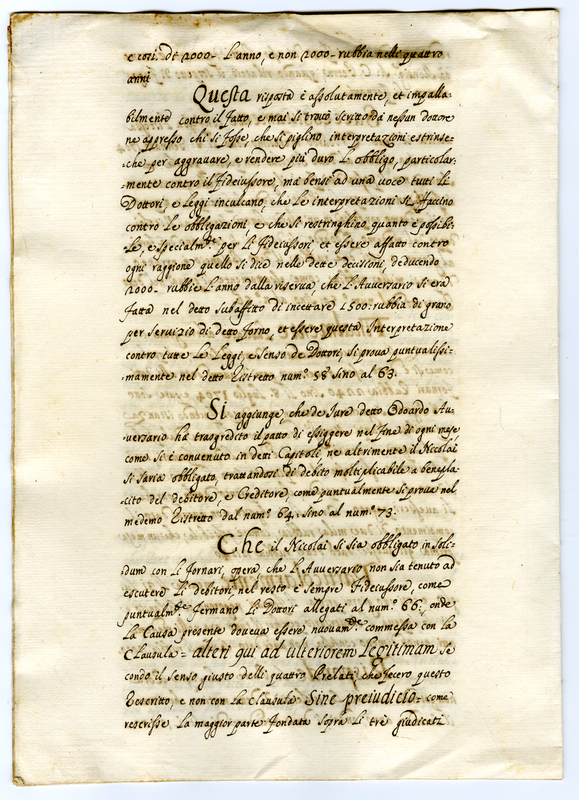 e così dt 2000- l'anno, e non 2000- rubbia nelli quattro
anni
Questa risposta è assolutamente, et impalla-
bilmente contro il fatto, e mai si trovò scritto da nessun dottore
ne appresso chi si fosse, che si piglino interpretazioni estrinse-
-che per aggravare, e rendere più duro l'obbligo, particolar-
-mente contro il fideiussore, ma bensi ad una voce tutti li
Dottori, e Leggi inculcano, che le interpretazioni si faccino
contro le obbligazioni, e che si restringhino quanto è possibi-
-le, e specialmte per li fideiussori et essere affatto contro
ogni raggione quello si dice nelle dette decisioni, deducendo
2000- rubbie l'anno dalla riserva, che l'Avversario si era
fatta nel detto subaffitto di incettare 1500- rubbia di grano
per servizio di detto forno, et essere questa Interpretazione
contro tutte le Leggi, e senso de Dottori, si prova puntualissi-
-mamente nel detto Ristretto num.° 58 sino al 63.
Si aggiunge, che de Iure detto Edoardo Au-
-versario ha trasgredito il patto di essiggere nel fine di ogni mese
come si è convenuto in detti Capitoli ne altrimente il Nicolai
si saria obbligato, trattandosi di debito moltiplicabile a benepla-
-cito del debitore, e Creditore, come puntualmente si prova nel
medemo Ristretto dal num.° 64. sino al num.° 73.
Che il Nicolai si sia obbligato in soli-
dum con li fornari, opera, che l'Avversario non sia tenuto ad
escutere li debitori, nel resto è sempre fideiussore, come
puntualmte fermano li Dottori allegati al num.° 66. onde
la Causa presente doveva essere nuovamte commessa con la
Clausula- alteri qui ad ulteriorem Legitimam se
condo il senso giusto delli quattro Prelati, che fecero questo
Rescritto, e non con la Clausula Sine preiudicio- come
rescrisse la maggior parte fondata sopra li trè giudicati